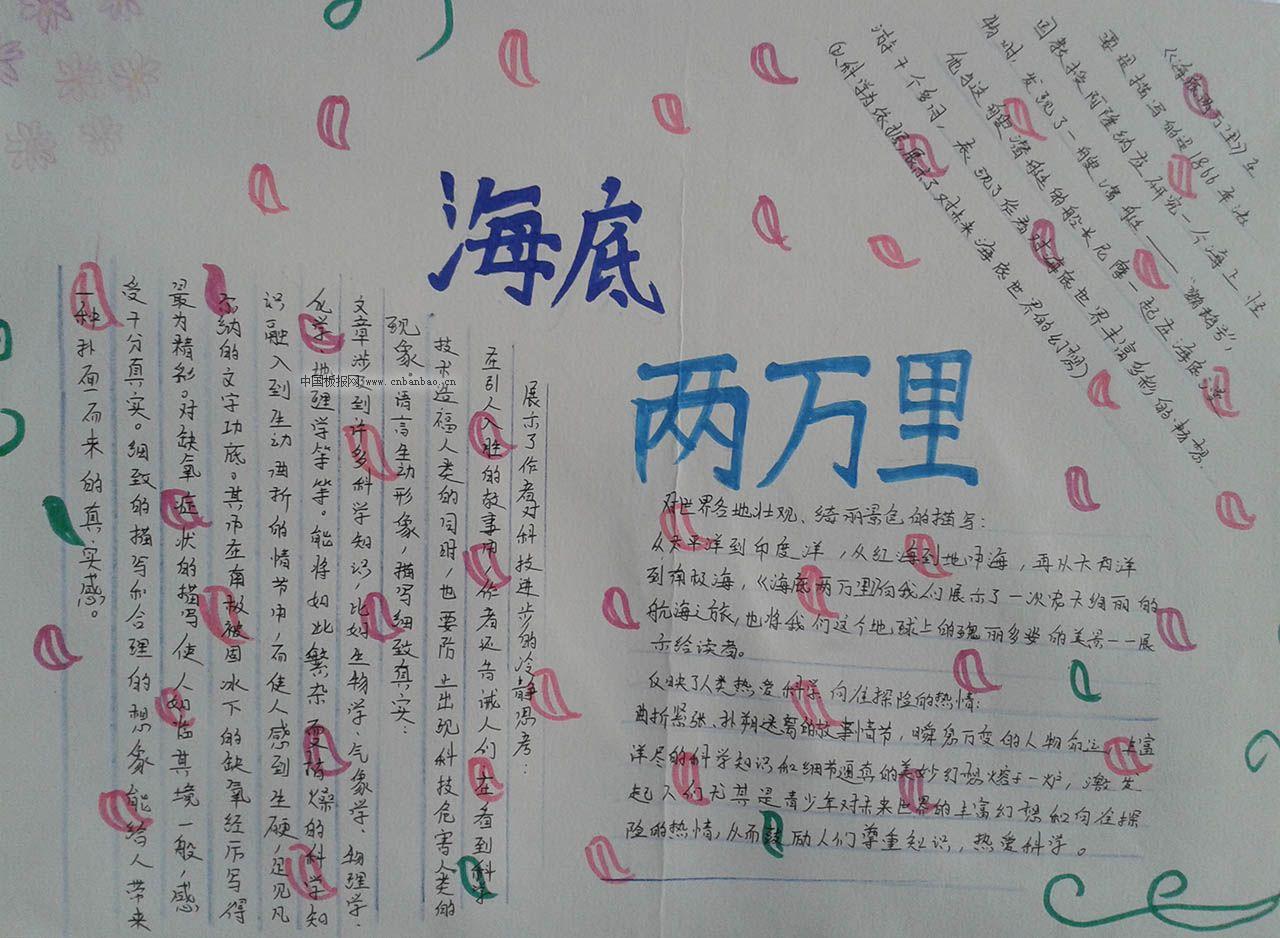 海底
两万里
《海底两万里》主
要是描写的是1866年法
国教授阿隆纳在研究一个海上怪
物时，发现了一艘潜艇——“鹦鹉号”，
他与这艘潜艇的船长尼摩一起在海底
游7个多月，表现了作者对海底世界丰富多彩的畅想。
(以科学为依据，展示了对未来海底世界的幻想)
展示了作者对科技进步的冷静思考：
在引人入胜的故事中，作者还告诫人们在看到科学
技术造福人类的同时，也要防止出现科技危害人类的
现象。语言生动形象，描写细致真实：
文章涉到许多科学知识，比如生物学、气象学、物理学、
化学、地理学等等。能将如此繁杂而枯燥的科学知
识融入到生动曲折的情节中，而使人感到生硬，足见凡
尔纳的文字功底。其中在南极被困冰下的缺氧经历写得
最为精彩。对缺氧症状的描写使人如临其境一般，感
受十分真实。细致的描写和合理的想象能给人带来
一种扑面而来的真实感。
对世界各地壮观、绮丽景色的描写：
从太平洋到印度洋，从红海到地中海，再从大西洋
到南极海，《海底两万里》向我们展示了一次宏大绚丽的
航海之旅，也将我们这个地球上的瑰丽多姿的美景一一展
示给读者。
反映了人类热爱科学向往探险的热情：
曲折紧张、扑朔迷离的故事情节，瞬息万变的人物命运，丰富
详尽的科学知识和细节逼真的美妙幻想熔于一炉，激发
起人们尤其是青少年对未来世界的丰富幻想和向往探
险的热情，从而鼓励人们尊重知识，热爱科学。
中国板报网 www.cnbanbao.cn